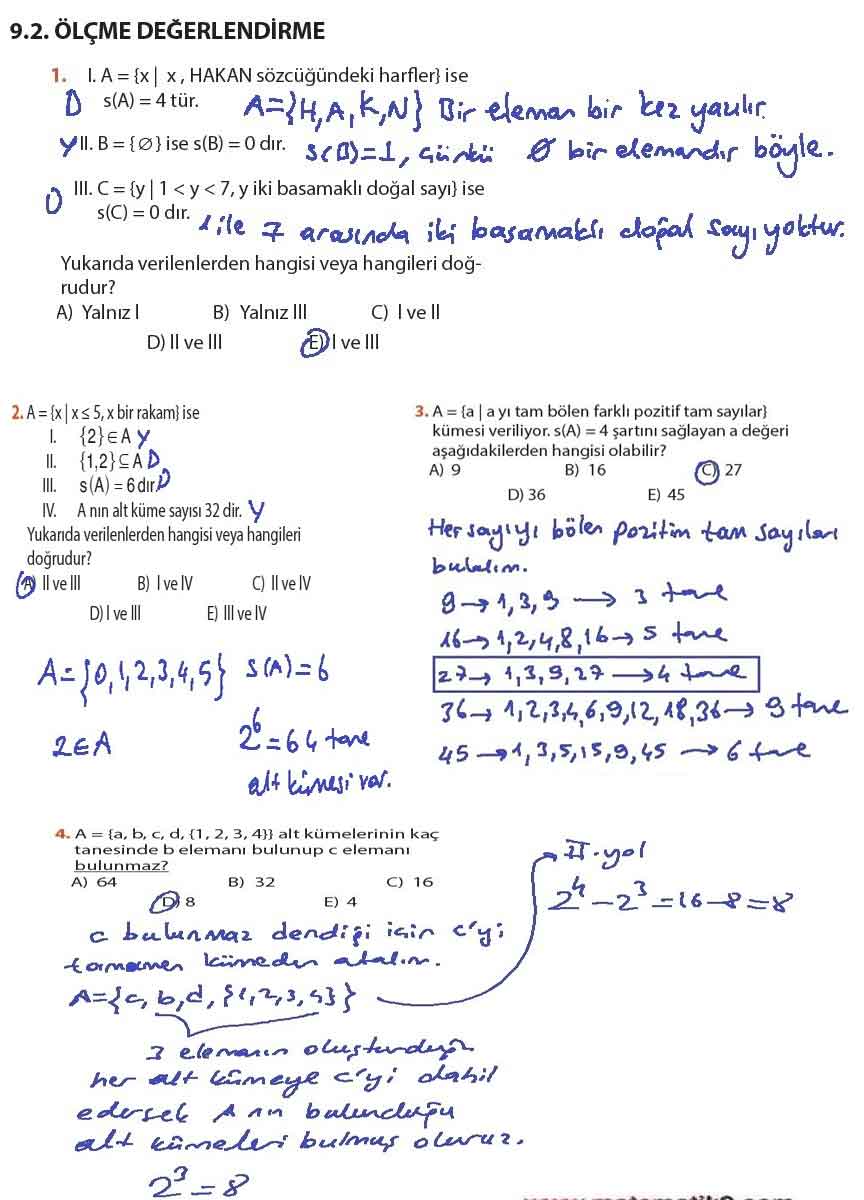 9.2. ÖLÇME DEĞERLENDİRME
1. I. A = {x | x , HAKAN sözcüğündeki harfler} ise
D s(A) = 4 tür. A={H,A,K,N} Bir eleman bir kez yazılır.
Y II. B = {∅} ise s(B) = 0 dır. s(B)=1, çünkü ∅ bir elemandır böyle.
D III. C = {y | 1 < y < 7, y iki basamaklı doğal sayı} ise
s(C) = 0 dır. 1 ile 7 arasında iki basamaklı doğal sayı yoktur.
Yukarıda verilenlerden hangisi veya hangileri doğ-
rudur?
A) Yalnız I B) Yalnız III C) I ve II
D) II ve III E) I ve III
2. A = {x | x ≤ 5, x bir rakam} ise
I. {2} ∈ A Y
II. {1,2} ⊆ A D
III. s(A) = 6 dır. D
IV. A nın alt küme sayısı 32 dir. Y
Yukarıda verilenlerden hangisi veya hangileri
doğrudur?
A) II ve III B) I ve IV C) II ve IV
D) I ve III E) III ve IV
A={0,1,2,3,4,5} s(A)=6
2∈A 2⁶=64 tane
alt kümesi var.
3. A = {a | a yı tam bölen farklı pozitif tam sayılar}
kümesi veriliyor. s(A) = 4 şartını sağlayan a değeri
aşağıdakilerden hangisi olabilir?
A) 9 B) 16 C) 27
D) 36 E) 45
Her sayıyı bölen pozitim tam sayıları
bulalım.
9→1,3,9 → 3 tane
16→1,2,4,8,16→5 tane
27→1,3,9,27→4 tane
36→1,2,3,4,6,9,12,18,36→9 tane
45→1,3,5,15,9,45→6 tane
4. A = {a, b, c, d, {1, 2, 3, 4}} alt kümelerinin kaç
tanesinde b elemanı bulunup c elemanı
bulunmaz?
A) 64 B) 32 C) 16
D) 8 E) 4
c bulunmaz dendiği için c'yi
tamamen kümeden atalım.
A={c,b,d,{1,2,3,4}}
3 elemanın oluşturduğu
her alt kümeye c'yi dahil
edersek A nın bulunduğu
alt kümeleri bulmuş oluruz.
2³=8
II. yol
2⁴-2³=16-8=8